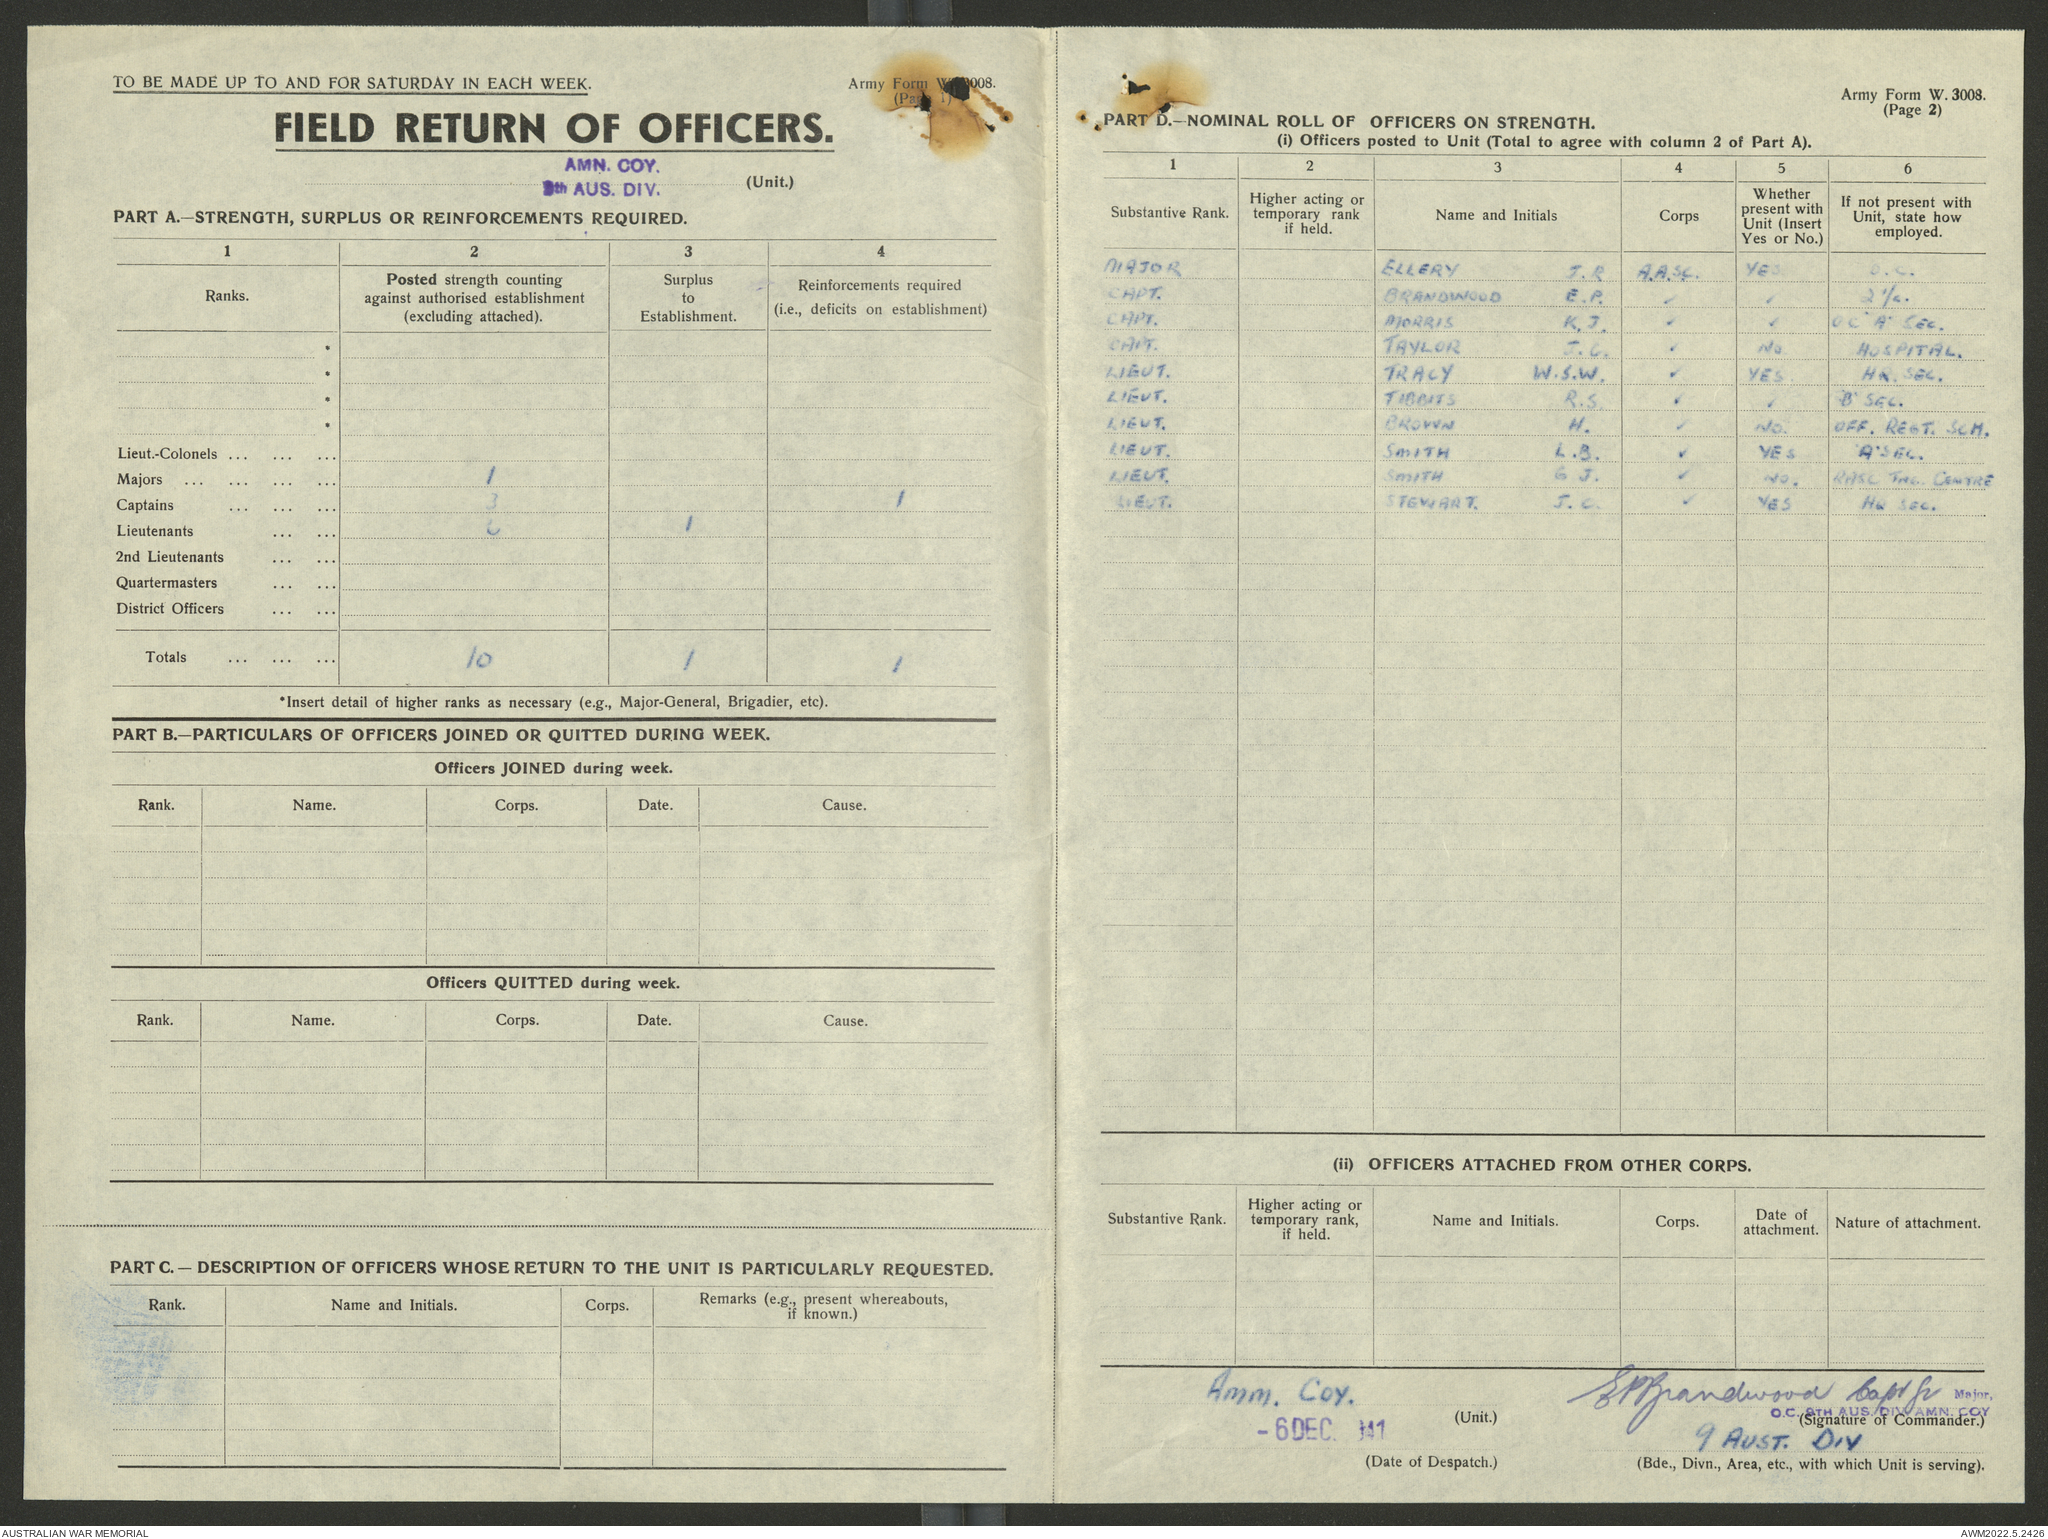 TO BE MADE UP TO AND FOR SATURDAY IN EACH WEEK.
Army Form W. 3008.
(Page 1)
FIELD RETURN OF OFFICERS.
AMN. COY.
9th AUS. DIV. (Unit.)
PART A.—STRENGTH, SURPLUS OR REINFORCEMENTS REQUIRED.
1 2 3 4
Ranks. Posted strength counting against authorised establishment (excluding attached). Surplus to Establishment. Reinforcements required (i.e., deficits on establishment)
*
*
*
*
Lieut.-Colonels ... ... ...
Majors ... ... ... ... 1
Captains ... ... ... 3 1
Lieutenants ... ... 6 1
2nd Lieutenants ... ...
Quartermasters ... ...
District Officers ... ...
Totals ... ... ... 10 1 1
*Insert detail of higher ranks as necessary (e.g., Major-General, Brigadier, etc).
PART B.—PARTICULARS OF OFFICERS JOINED OR QUITTED DURING WEEK.
Officers JOINED during week.
Rank. Name. Corps. Date. Cause.
Officers QUITTED during week.
Rank. Name. Corps. Date. Cause.
PART C.—DESCRIPTION OF OFFICERS WHOSE RETURN TO THE UNIT IS PARTICULARLY REQUESTED.
Rank. Name and Initials. Corps. Remarks (e.g., present whereabouts, if known.)
Army Form W. 3008.
(Page 2)
PART D.—NOMINAL ROLL OF OFFICERS ON STRENGTH.
(i) Officers posted to Unit (Total to agree with column 2 of Part A).
1 2 3 4 5 6
Substantive Rank. Higher acting or temporary rank if held. Name and Initials Corps Whether present with Unit (Insert Yes or No.) If not present with Unit, state how employed.
MAJOR ELLERY J.R A.A.S.C. YES O.C.
CAPT. BRANDWOOD E.P. ✓ ✓ 2 i/c.
CAPT. MORRIS K.J. ✓ ✓ OC "A" SEC.
CAPT. TAYLOR J.G. ✓ NO HOSPITAL.
LIEUT. TRACY W.S.W. ✓ YES HQ. SEC.
LIEUT. TIBBITS R.S. ✓ ✓ "B" SEC.
LIEUT. BROWN H. ✓ NO. OFF. REGT. SCH.
LIEUT. SMITH L.B. ✓ YES "A" SEC.
LIEUT. SMITH G J. ✓ NO. RASC TNG. CENTRE
LIEUT. STEWART. J.C. ✓ YES HQ SEC.
(ii) OFFICERS ATTACHED FROM OTHER CORPS.
Substantive Rank. Higher acting or temporary rank, if held. Name and Initials. Corps. Date of attachment. Nature of attachment.
Amm. Coy. (Unit.)
-6 DEC. 1941
(Date of Despatch.)
EP Brandwood Capt for Major,
O.C. 9TH AUS. DIV. AMN. COY
(Signature of Commander.)
9 AUST. DIV
(Bde., Divn., Area, etc., with which Unit is serving).
AUSTRALIAN WAR MEMORIAL
AWM2022.5.2426